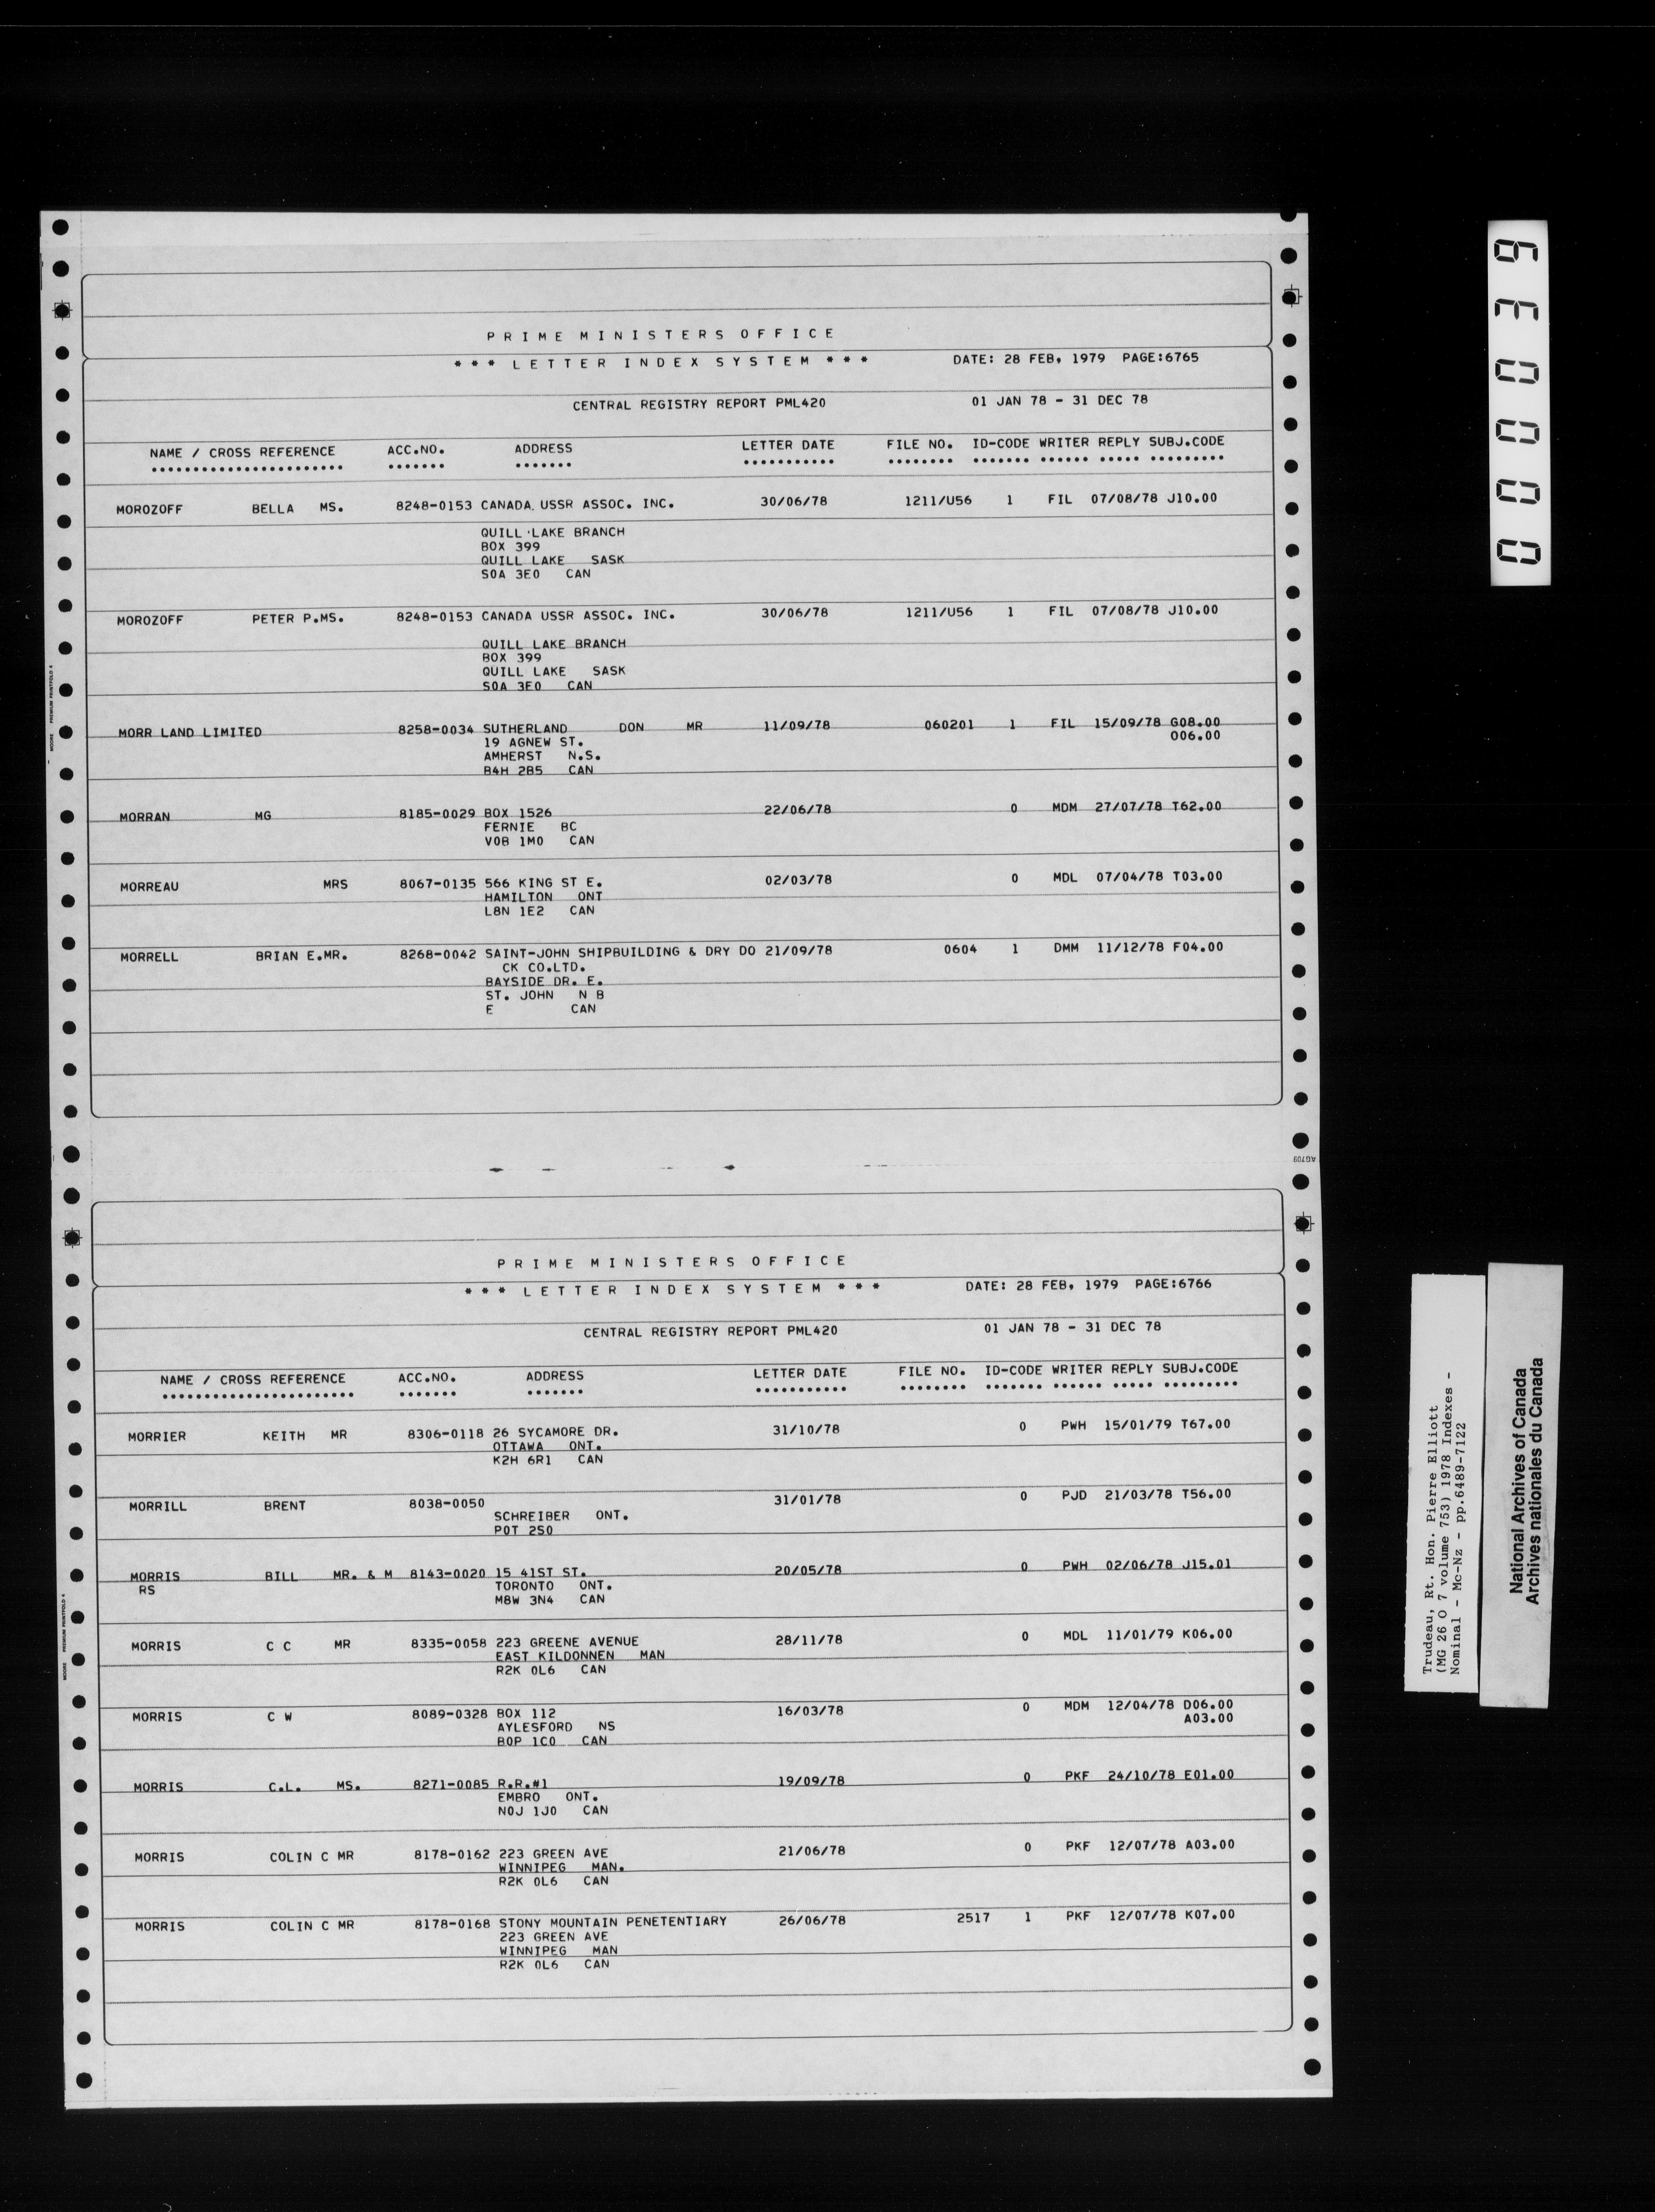 PRIME MINISTERS OFFICE
*** LETTER INDEX SYSTEM *** DATE: 28 FEB, 1979 PAGE:6765
CENTRAL REGISTRY REPORT PML420 01 JAN 78 - 31 DEC 78
NAME / CROSS REFERENCE ACC.NO. ADDRESS LETTER DATE FILE NO. ID-CODE WRITER REPLY SUBJ.CODE
MOROZOFF BELLA MS. 8248-0153 CANADA USSR ASSOC. INC. 30/06/78 1211/U56 1 FIL 07/08/78 J10.00
QUILL LAKE BRANCH
BOX 399
QUILL LAKE SASK
S0A 3E0 CAN
MOROZOFF PETER P.MS. 8248-0153 CANADA USSR ASSOC. INC. 30/06/78 1211/U56 1 FIL 07/08/78 J10.00
QUILL LAKE BRANCH
BOX 399
QUILL LAKE SASK
S0A 3E0 CAN
MORR LAND LIMITED 8258-0034 SUTHERLAND DON MR 11/09/78 060201 1 FIL 15/09/78 G08.00
19 AGNEW ST. O06.00
AMHERST N.S.
B4H 2B5 CAN
MORRAN MG 8185-0029 BOX 1526 22/06/78 0 MDM 27/07/78 T62.00
FERNIE BC
V0B 1M0 CAN
MORREAU MRS 8067-0135 566 KING ST E. 02/03/78 0 MDL 07/04/78 T03.00
HAMILTON ONT
L8N 1E2 CAN
MORRELL BRIAN E.MR. 8268-0042 SAINT-JOHN SHIPBUILDING & DRY DO 21/09/78 0604 1 DMM 11/12/78 F04.00
CK CO.LTD.
BAYSIDE DR. E.
ST. JOHN N B
E CAN
MOORE PREMIUM PRINTFOLD 4
AG709
PRIME MINISTERS OFFICE
*** LETTER INDEX SYSTEM *** DATE: 28 FEB, 1979 PAGE:6766
CENTRAL REGISTRY REPORT PML420 01 JAN 78 - 31 DEC 78
NAME / CROSS REFERENCE ACC.NO. ADDRESS LETTER DATE FILE NO. ID-CODE WRITER REPLY SUBJ.CODE
MORRIER KEITH MR 8306-0118 26 SYCAMORE DR. 31/10/78 0 PWH 15/01/79 T67.00
OTTAWA ONT.
K2H 6R1 CAN
MORRILL BRENT 8038-0050 31/01/78 0 PJD 21/03/78 T56.00
SCHREIBER ONT.
P0T 2S0
MORRIS BILL MR. & M 8143-0020 15 41ST ST. 20/05/78 0 PWH 02/06/78 J15.01
RS TORONTO ONT.
M8W 3N4 CAN
MORRIS C C MR 8335-0058 223 GREENE AVENUE 28/11/78 0 MDL 11/01/79 K06.00
EAST KILDONNEN MAN
R2K 0L6 CAN
MORRIS C W 8089-0328 BOX 112 16/03/78 0 MDM 12/04/78 D06.00
AYLESFORD NS A03.00
B0P 1C0 CAN
MORRIS C.L. MS. 8271-0085 R.R.#1 19/09/78 0 PKF 24/10/78 E01.00
EMBRO ONT.
N0J 1J0 CAN
MORRIS COLIN C MR 8178-0162 223 GREEN AVE 21/06/78 0 PKF 12/07/78 A03.00
WINNIPEG MAN.
R2K 0L6 CAN
MORRIS COLIN C MR 8178-0168 STONY MOUNTAIN PENETENTIARY 26/06/78 2517 1 PKF 12/07/78 K07.00
223 GREEN AVE
WINNIPEG MAN
R2K 0L6 CAN
MOORE PREMIUM PRINTFOLD 4
000039
Trudeau, Rt. Hon. Pierre Elliott
(MG 26 O 7 volume 753) 1978 Indexes -
Nominal - Mc-Nz - pp.6489-7122
National Archives of Canada
Archives nationales du Canada